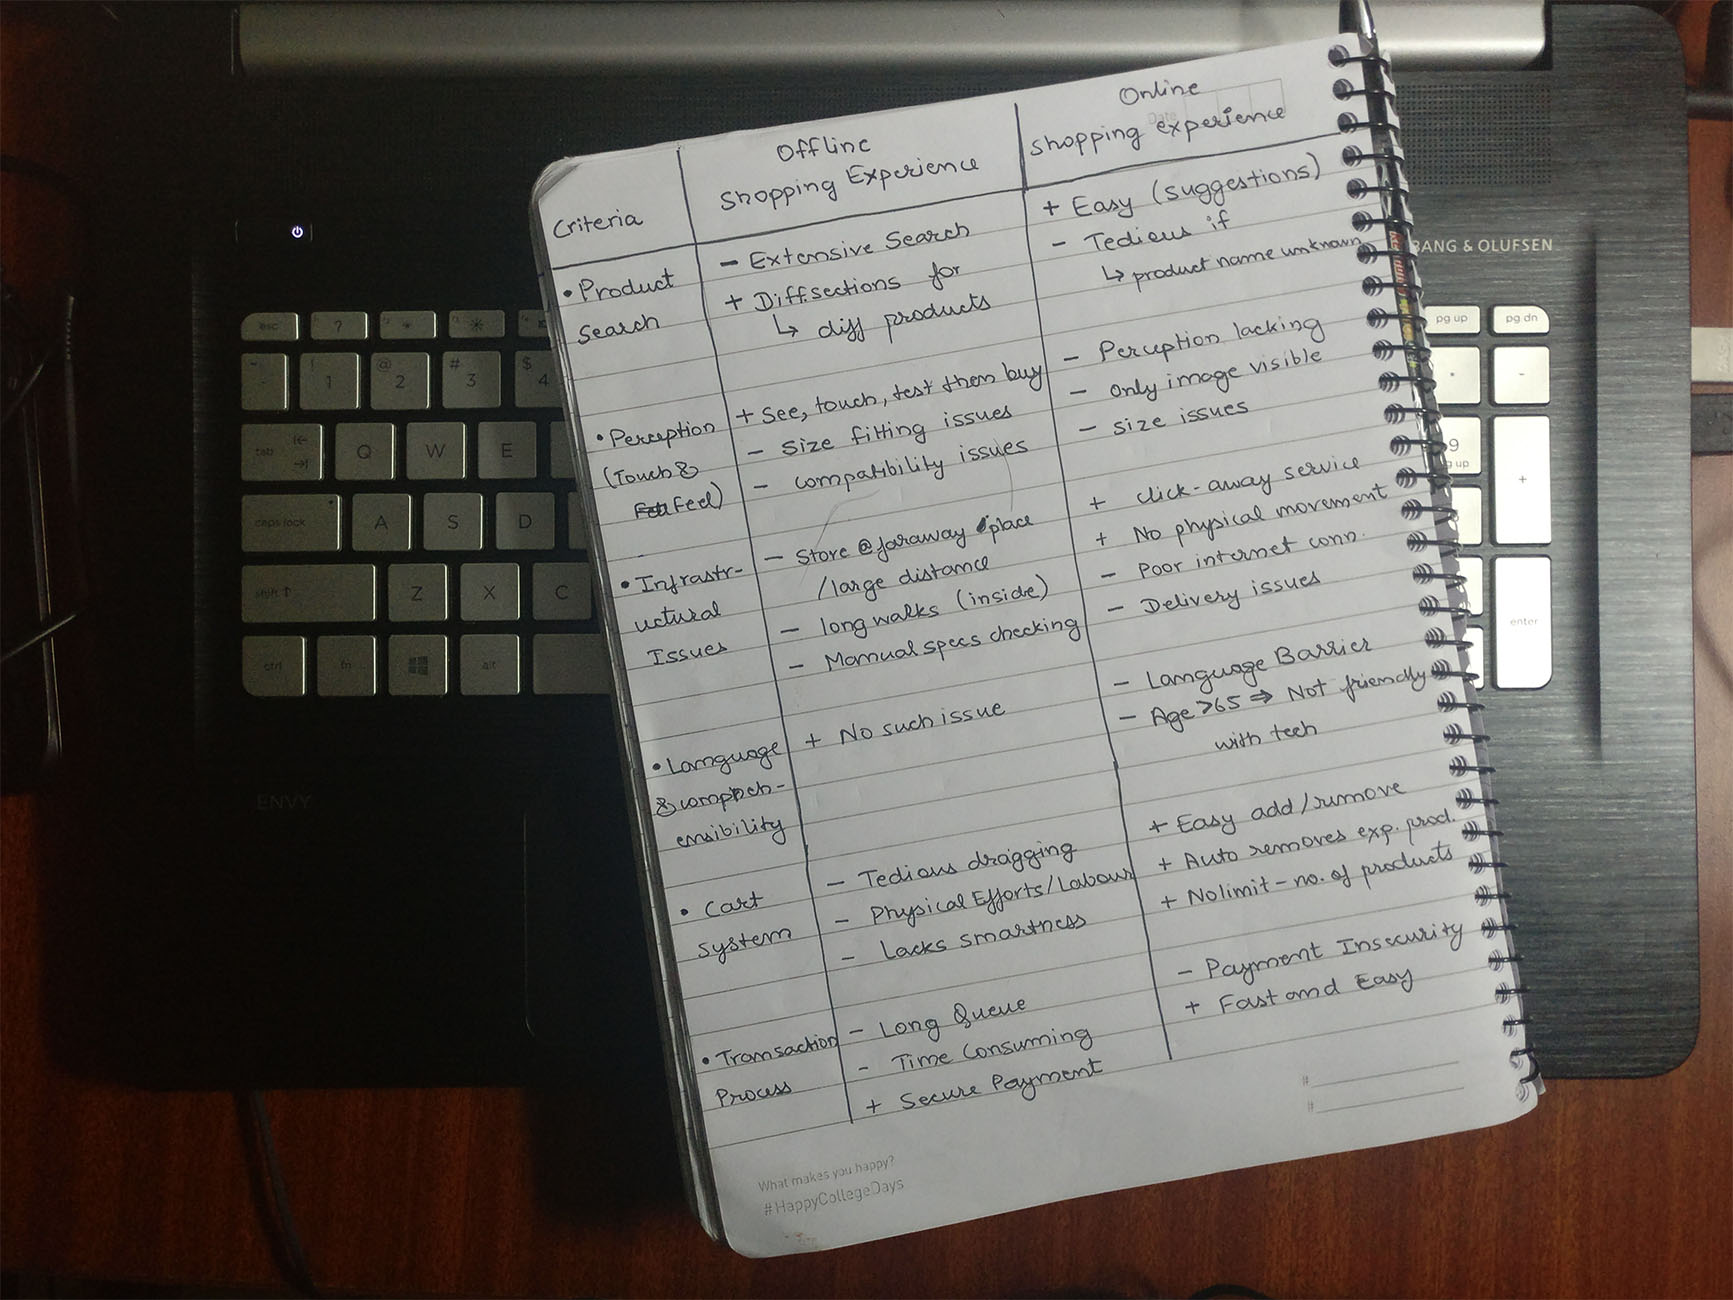 Criteria
Offline
Shopping Experience
Online
shopping experience
• Product
Search
− Extensive Search
+ Diff sections for
↳ diff products
+ Easy (suggestions)
− Tedious if
↳ product name unknown
• Perception
(Touch &
Feel)
+ See, touch, test then buy
− Size fitting issues
− compatibility issues
− Perception lacking
− Only image visible
− size issues
• Infrastr-
uctural
Issues
− Store @ faraway place
/large distance
− long walks (inside)
− Manual specs checking
+ click-away service
+ No physical movement
− Poor internet conn.
− Delivery issues
• Language
& compreh-
ensibility
+ No such issue
− Language Barrier
− Age >65 ⇒ Not friendly
with tech
• Cart
system
− Tedious dragging
− Physical Efforts/Labour
− Lacks smartness
+ Easy add/remove
+ Auto removes exp. prod.
+ No limit - no. of products
• Transaction
Process
− Long Queue
− Time Consuming
+ Secure Payment
− Payment Insecurity
+ Fast and Easy
#
#
What makes you happy?
#HappyCollegeDays
Date
BANG & OLUFSEN
ENVY
esc
?
! 1
@ 2
# 3
$ 4
tab
Q
W
E
caps lock
A
S
D
shift
Z
X
C
ctrl
fn
alt
pg up
pg dn
-
9
pg up
+
enter